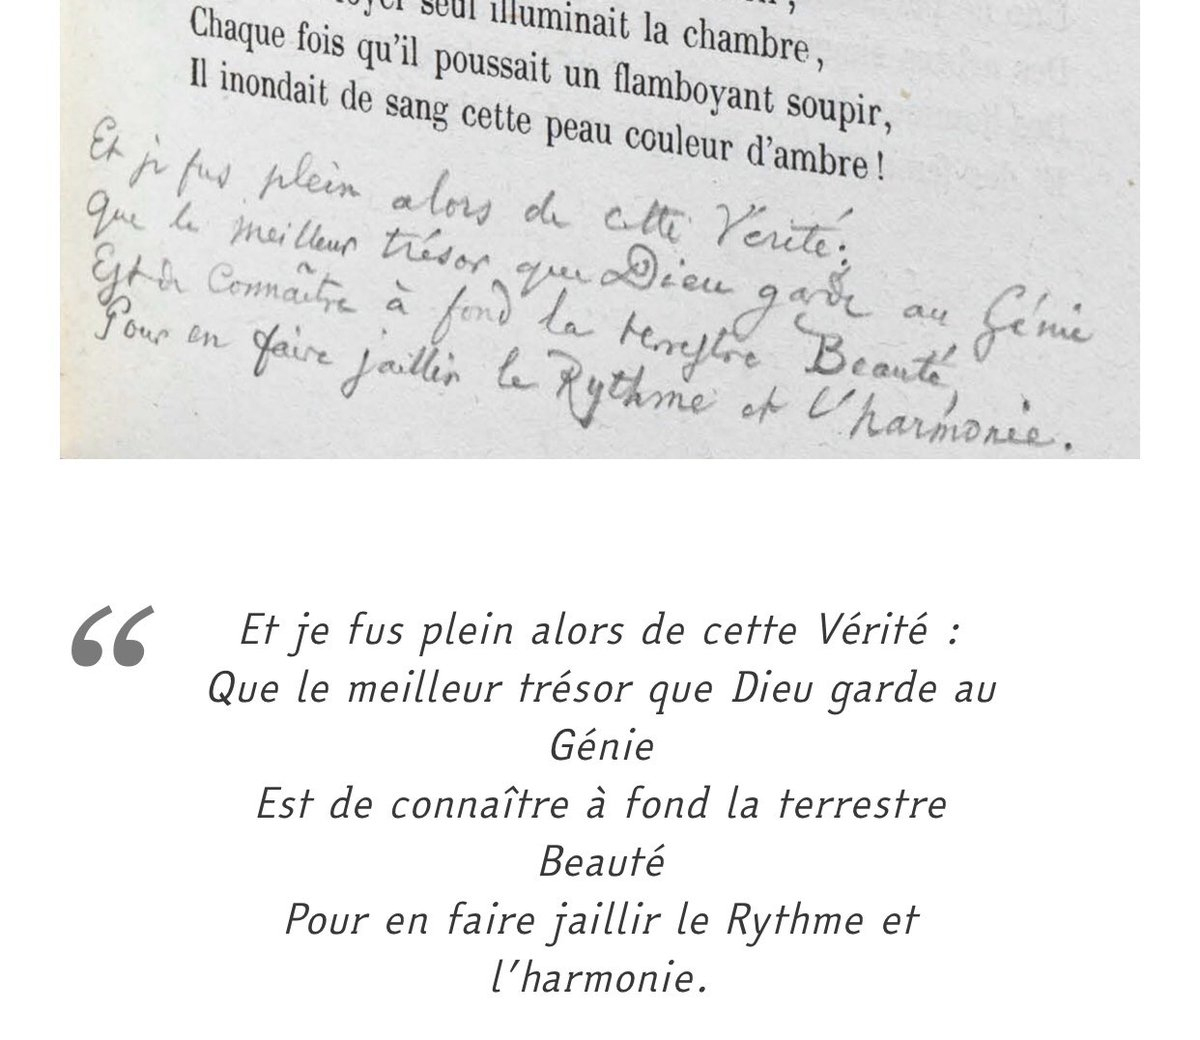 seul illuminait la chambre,
Chaque fois qu'il poussait un flamboyant soupir,
Il inondait de sang cette peau couleur d'ambre !
Et je fus plein alors de cette Vérité:
Que le meilleur trésor que Dieu garde au Génie
Est de Connaître à fond la terrestre Beauté,
Pour en faire jaillir le Rythme et l'harmonie.
“
Et je fus plein alors de cette Vérité :
Que le meilleur trésor que Dieu garde au
Génie
Est de connaître à fond la terrestre
Beauté
Pour en faire jaillir le Rythme et
l'harmonie.